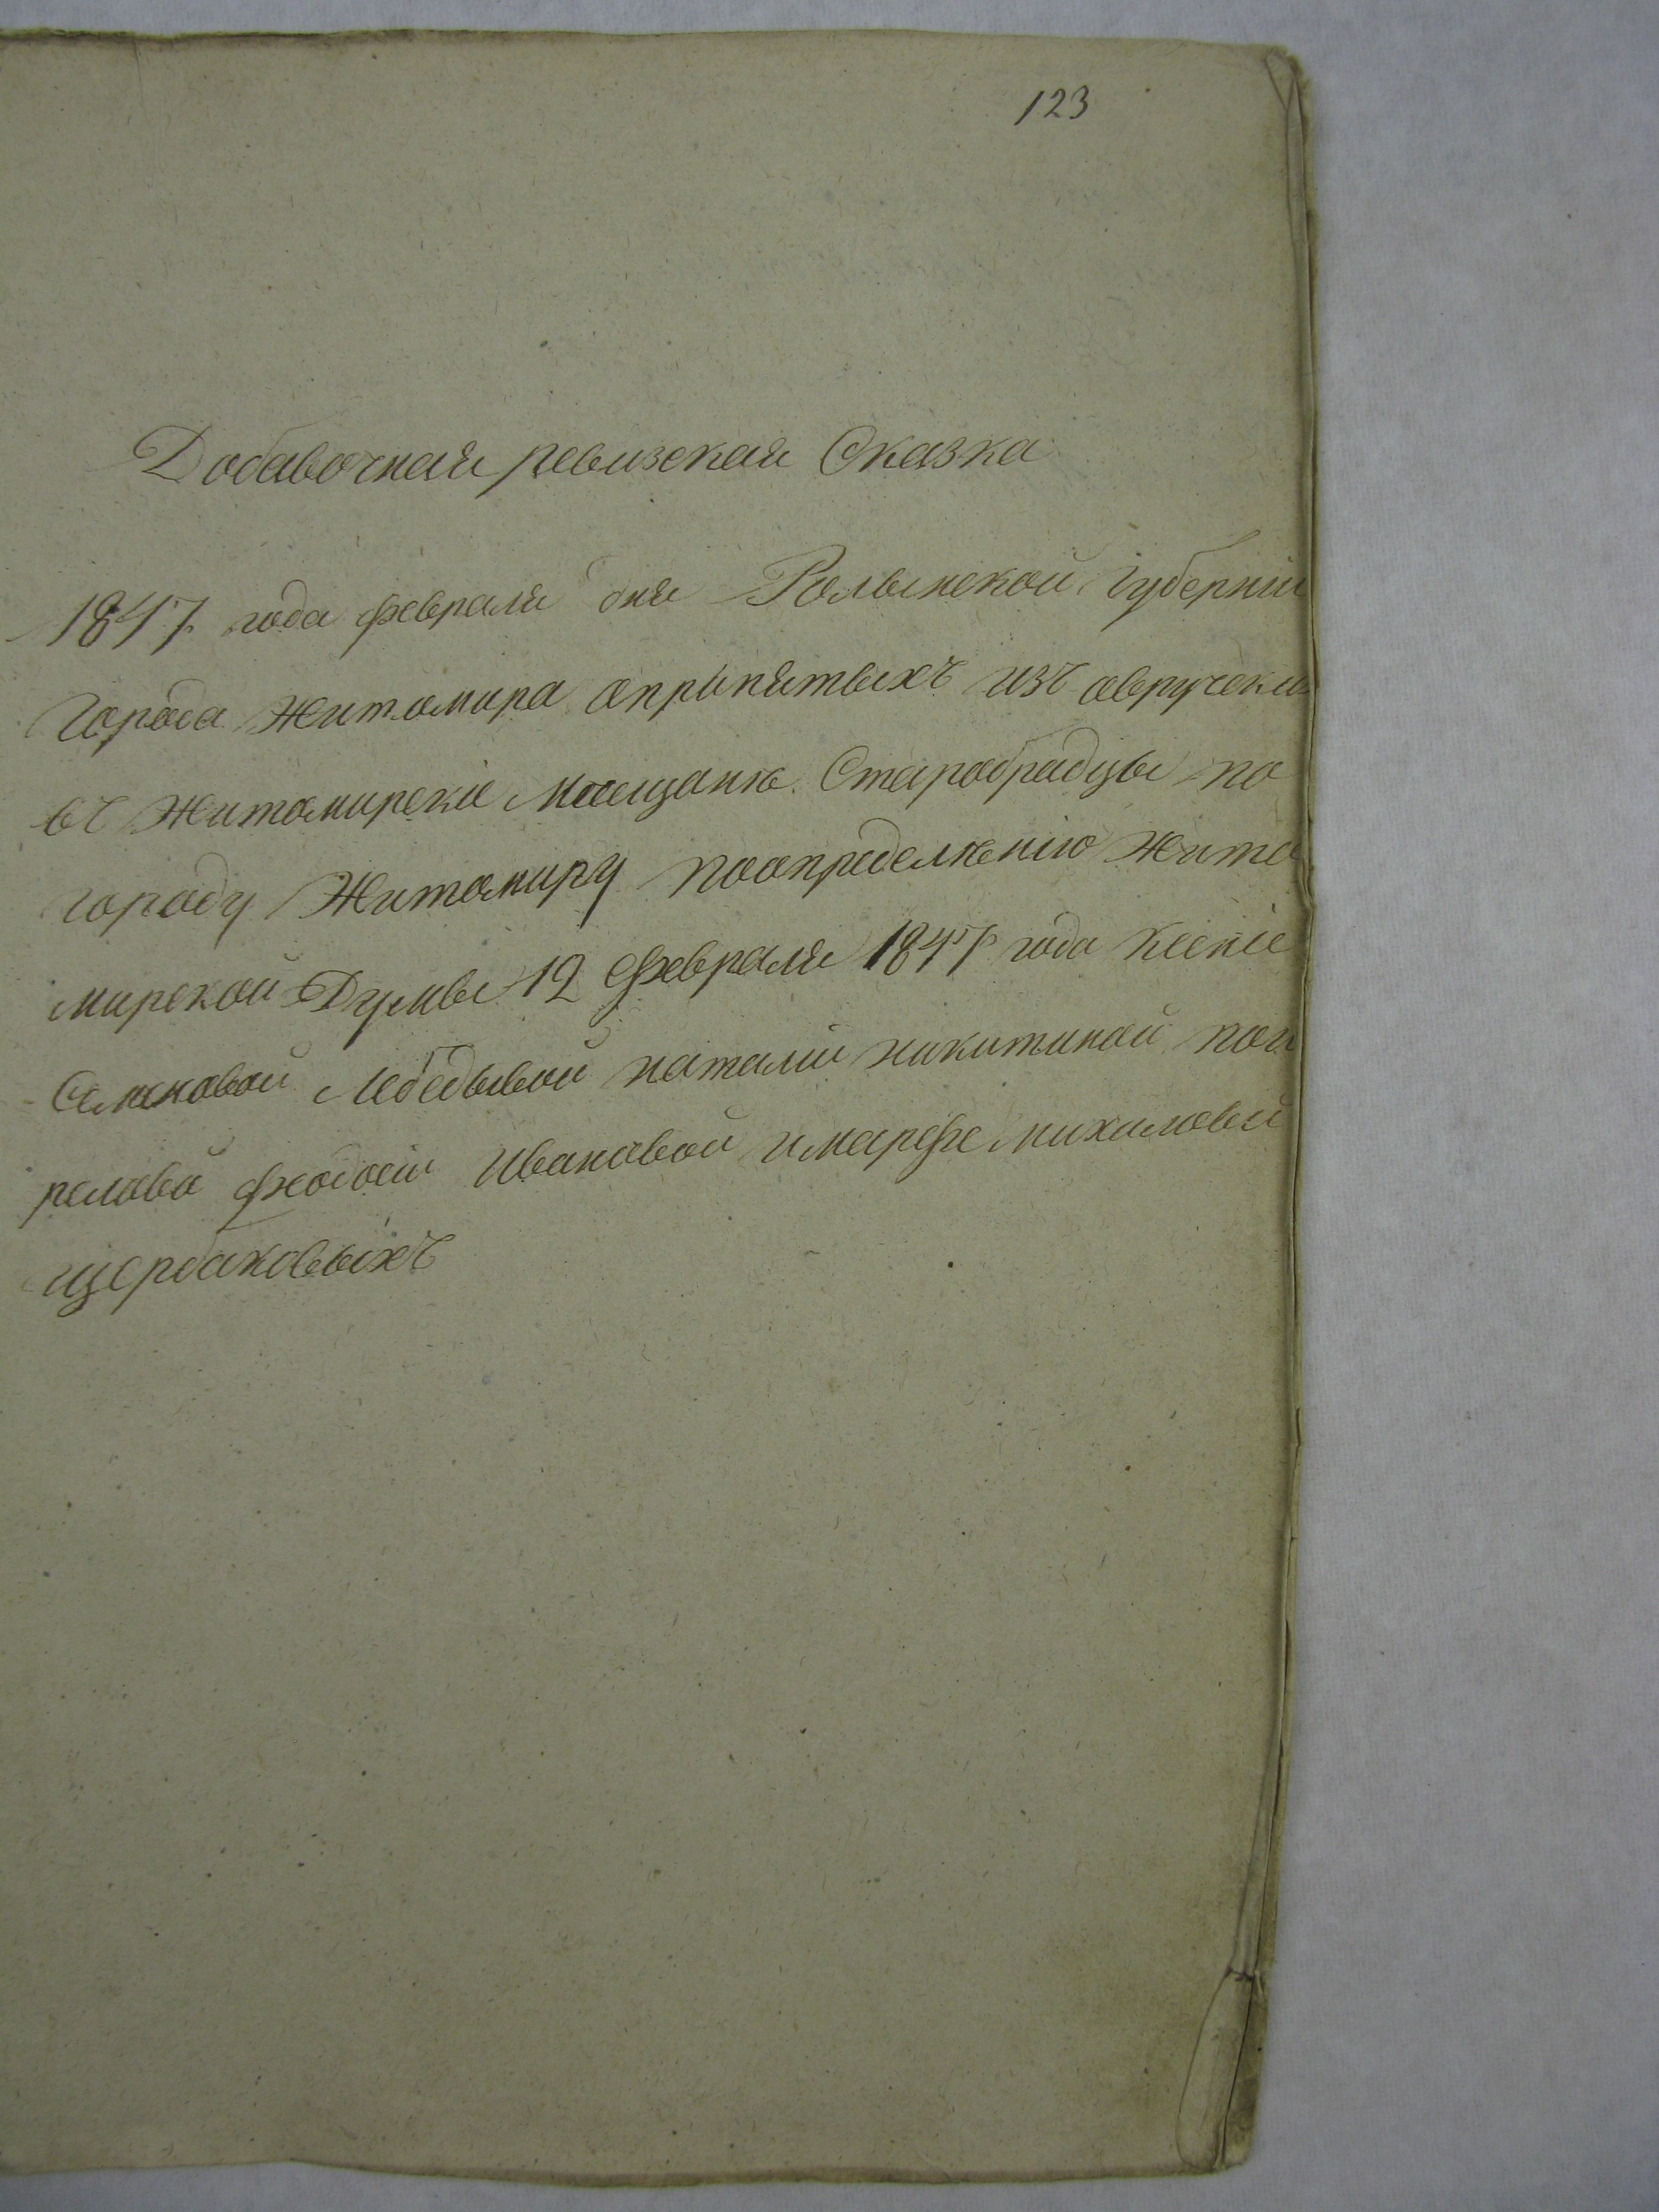 123
Добавочная ревизская Сказка
1847 года февраля дня Волынской губерніи
Города Житомира опринятыхъ изъ овручски
въ Житомирскіе Мещанѣ Старобрадцы по
городу Житомиру поопределѣнію Жито
мирской Думы 12 февраля 1847 года Ксеніе
Семеновой Лебедывой наталіи никитиной пог
реловой феодосіи Ивановой имарфе михаловы
щербаковыхъ